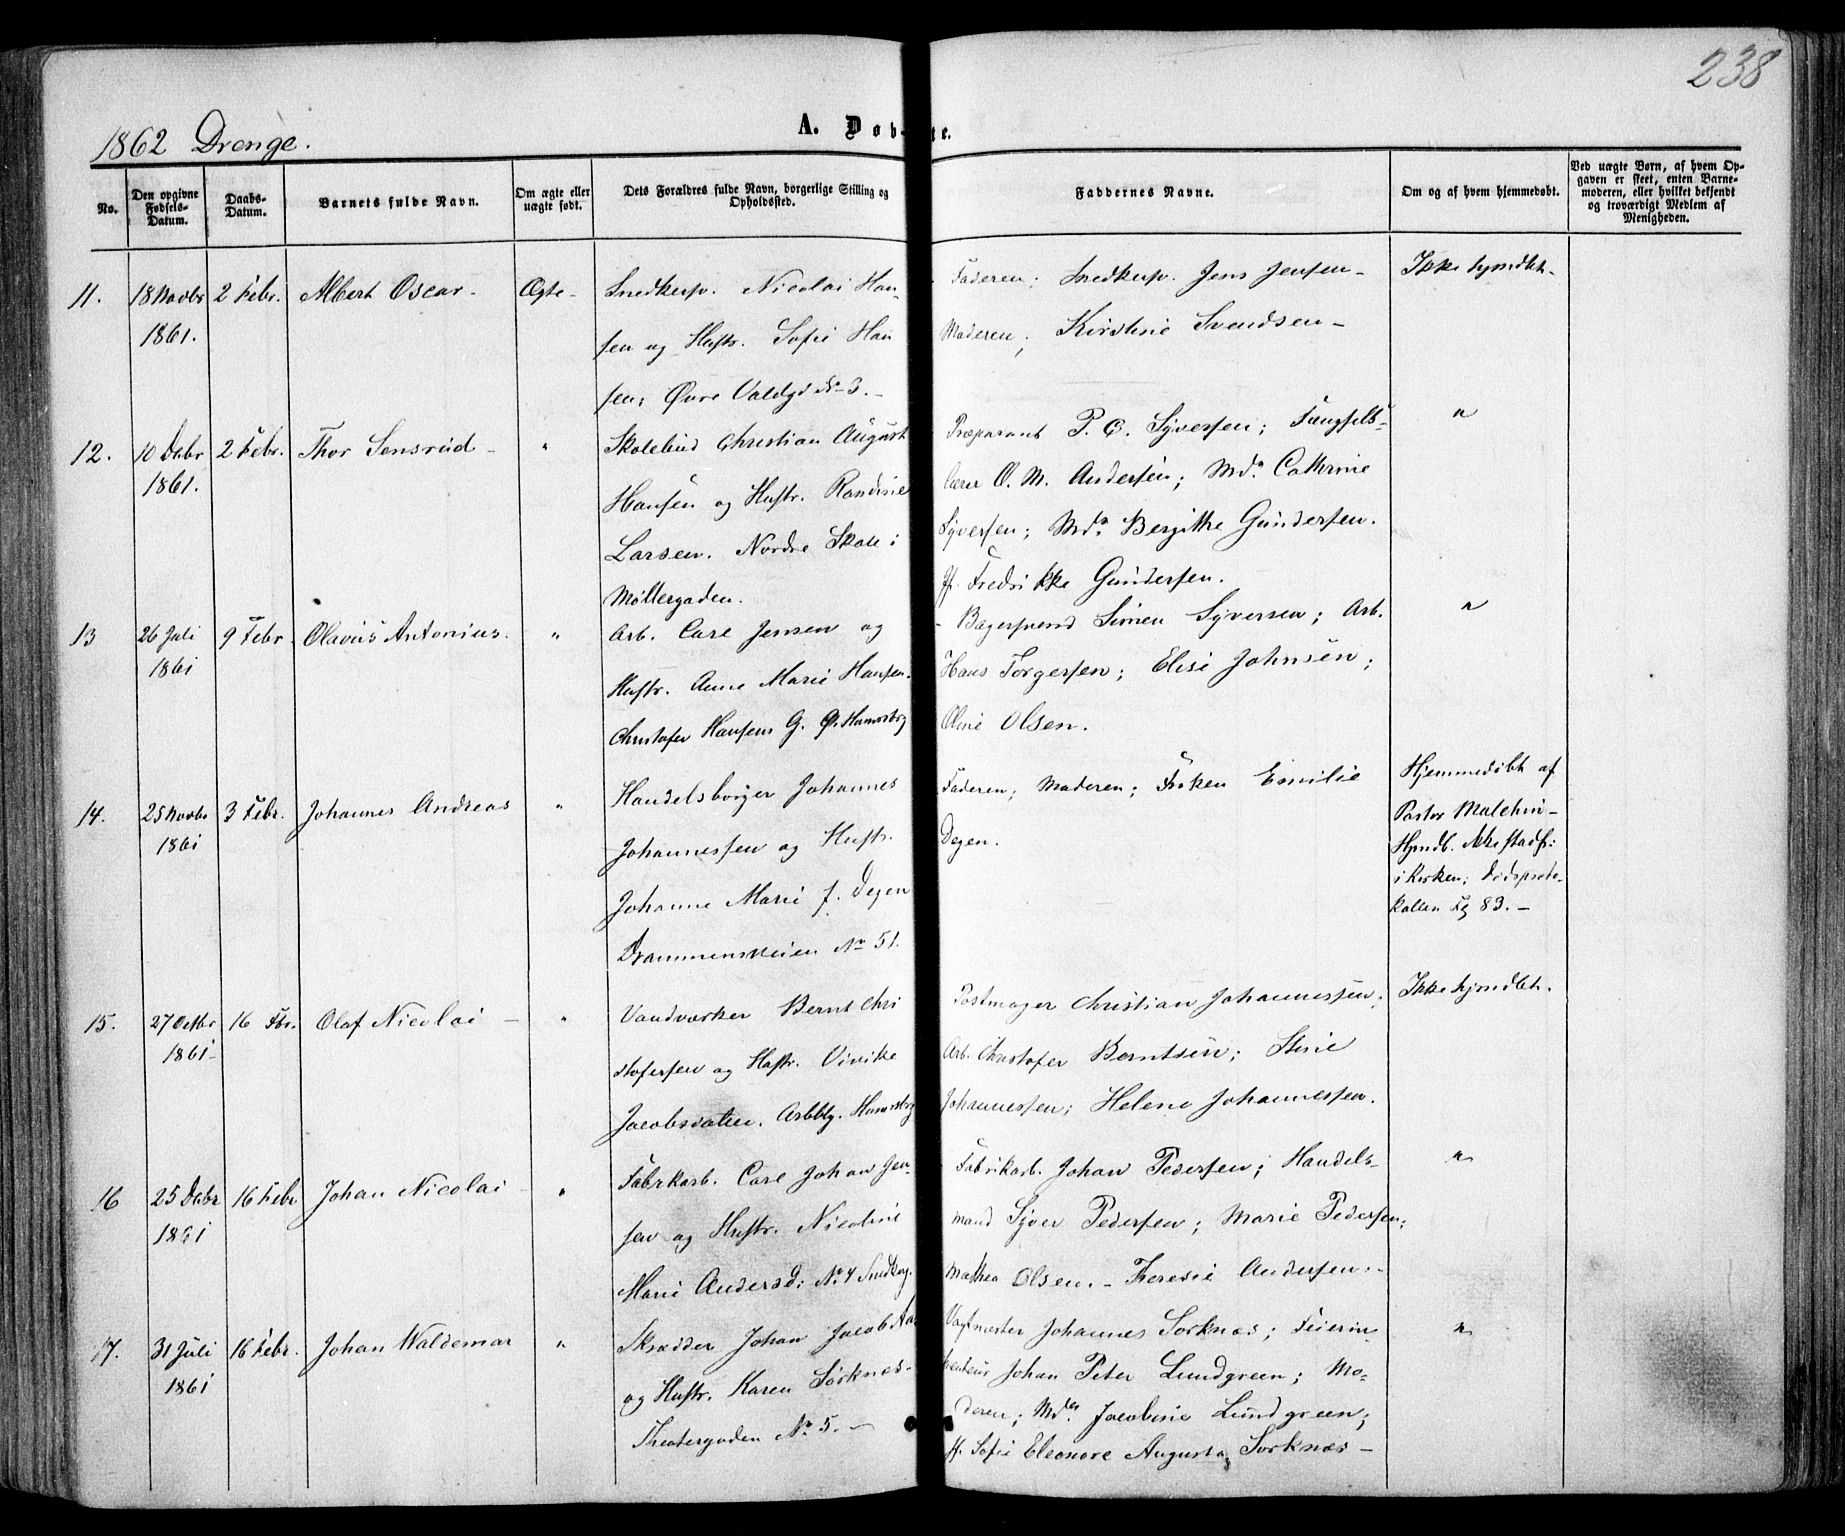 238
1862 Drenge.
A. Døb te.
No.
Den opgivne Fødsels-Datum.
Daabs-Datum.
Barnets fulde Navn.
Om ægte eller uægte født.
Dets Forældres fulde Navn, borgerlige Stilling og Opholdssted.
Faddernes Navne.
Om og af hvem hjemmedøbt.
Ved uægte Børn, af hvem Opgaven er skeet, enten Barnemoderen, eller hvilket bekjendt og troværdigt Medlem af Menigheden.
11. 18 Novbr 1861. 2 Febr. Albert Oscar. Ægte
Snedkersv. Nicolai Han-
sen og Hustr. Sofie Han
sen; Øvre Voldgd No 3.
Faderen; Snedkersv. Jens Jensen
Moderen; Kirstine Svendsen
Ikke hjmdbt.
12. 10 Decbr 1861. 2 Febr. Thor Sensrud "
Skolebud Christian August
Hansen og Hustr. Randine
Larsen. Nordre Skole i
Møllergaden.
Præparant P. C. Syversen; Fængsels-
lærer O. M. Andersen; Md. Cathrine
Syversen; Md. Bergitte Gundersen.
Jf. Fredrikke Gundersen.
"
13 26 Juli 1861 9 Febr. Olavus Antonius. "
Arb. Carl Jensen og
Hustr. Anne Marie Hansen.
Christofer Hansens G. Ø. Hamrsbg
Bagersvend Simen Syversen; Arb.
Hans Torgersen; Elise Johnsen;
Oline Olsen.
"
14. 25 Novbr 1861 3 Febr. Johannes Andreas "
Handelsborger Johannes
Johannessen og Hustr.
Johanne Marie f. Degen
Drammensveien No 51.
Faderen; Moderen; Frøken Emilie
Degen.
Hjemmedøbt af
Pastor Malthin
Hjmdb. stadf:
i Kirken; Dødsproto-
kollen Fg 83.
15. 27 Octbr 1861 16 Fbr. Olaf Nicolai "
Vandværker Bernt Chri
stofersen og Hustr. Vivike
Jacobsdatter. Arbblg. Hamrsbg
Postmager Christian Johannessen;
Arb. Christofer Berntsen; Stine
Johannessen; Helene Johannessen.
Ikke hjmdbt.
16 25 Decbr 1861 16 Febr Johan Nicolai "
Fabrkarb. Carl Johan Jen-
sen og Hustr. Nicoline
Marie Andersd; No 4
Fabrikarb. Johan Pedersen; Handels-
mand Syver Pedersen; Marie Pedersen;
Mathea Olsen. Theresie Andersen.
"
17. 31 Juli 1861 16 Febr. Johan Waldemar "
Skrædder Johan Jacob Aa
og Hustr. Karen Sørknæs
Theatergaden No 5.
Vagtmester Johannes Sorknæs; Feierin-
spenteur Johan Peter Lundgreen; Mo-
deren; Md. Jacobine Lundgreen;
Jf. Sofie Eleonore Augusta Sorknæs
"